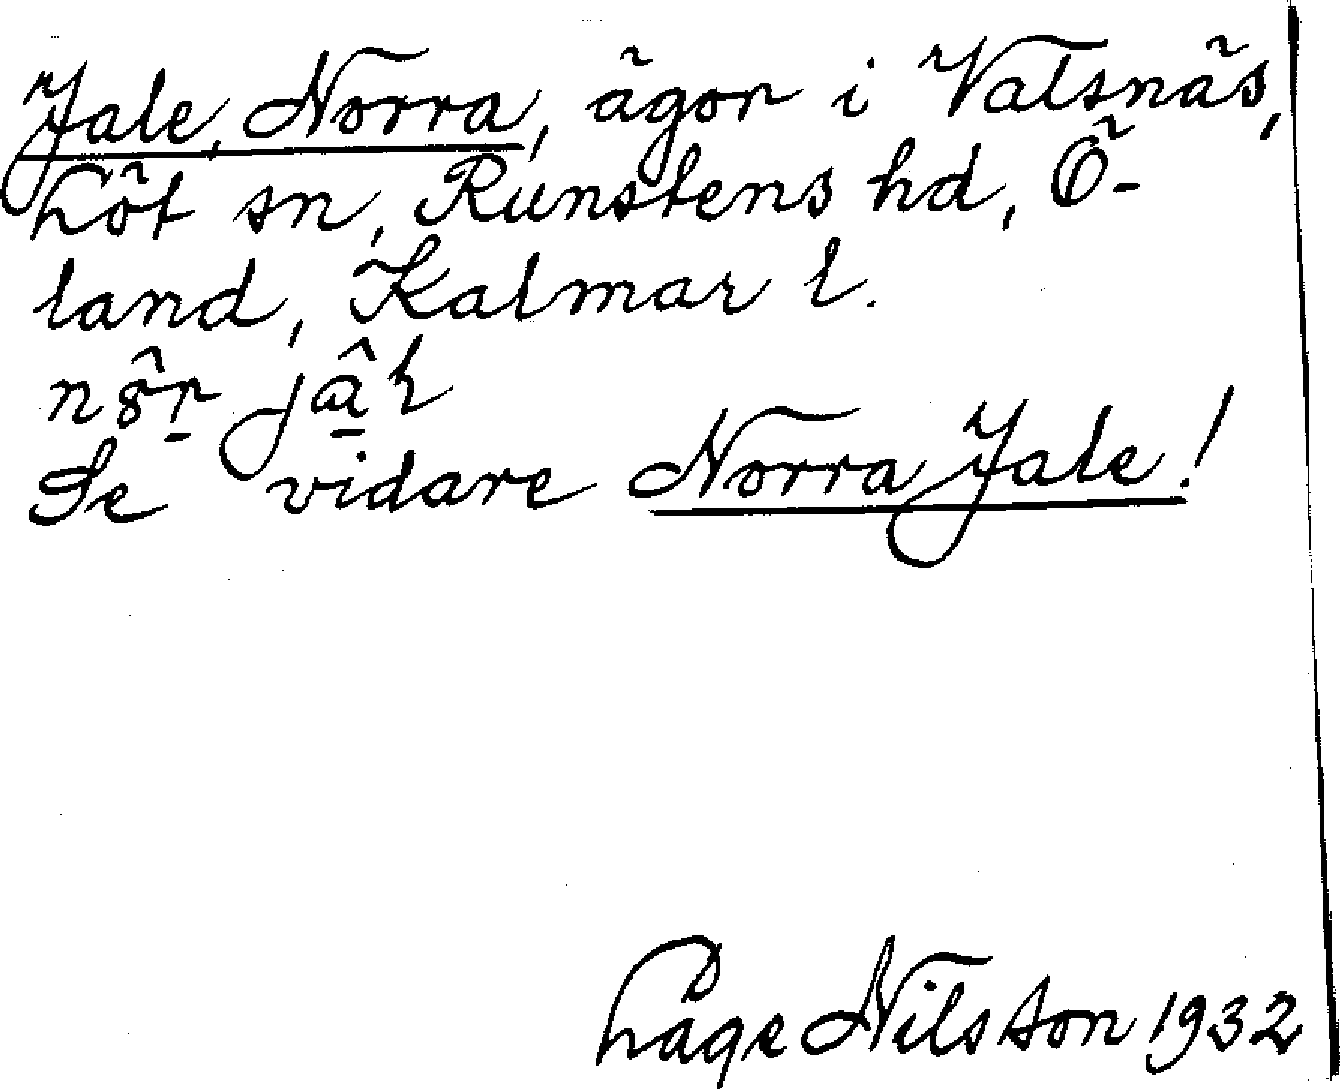 Jale, Norra, ägor i Valsnäs,
Löt sn, Runstens hd, Ö-
land, Kalmar l.
Se vidare Norra Jale!
Låge Nilsson 1932